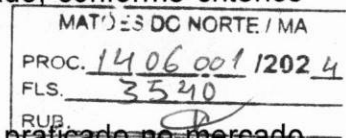 conforme critérios
MATÕES DO NORTE / MA
PROC. 1406001 /2024
FLS. 3540
RUB.
praticado no mercado